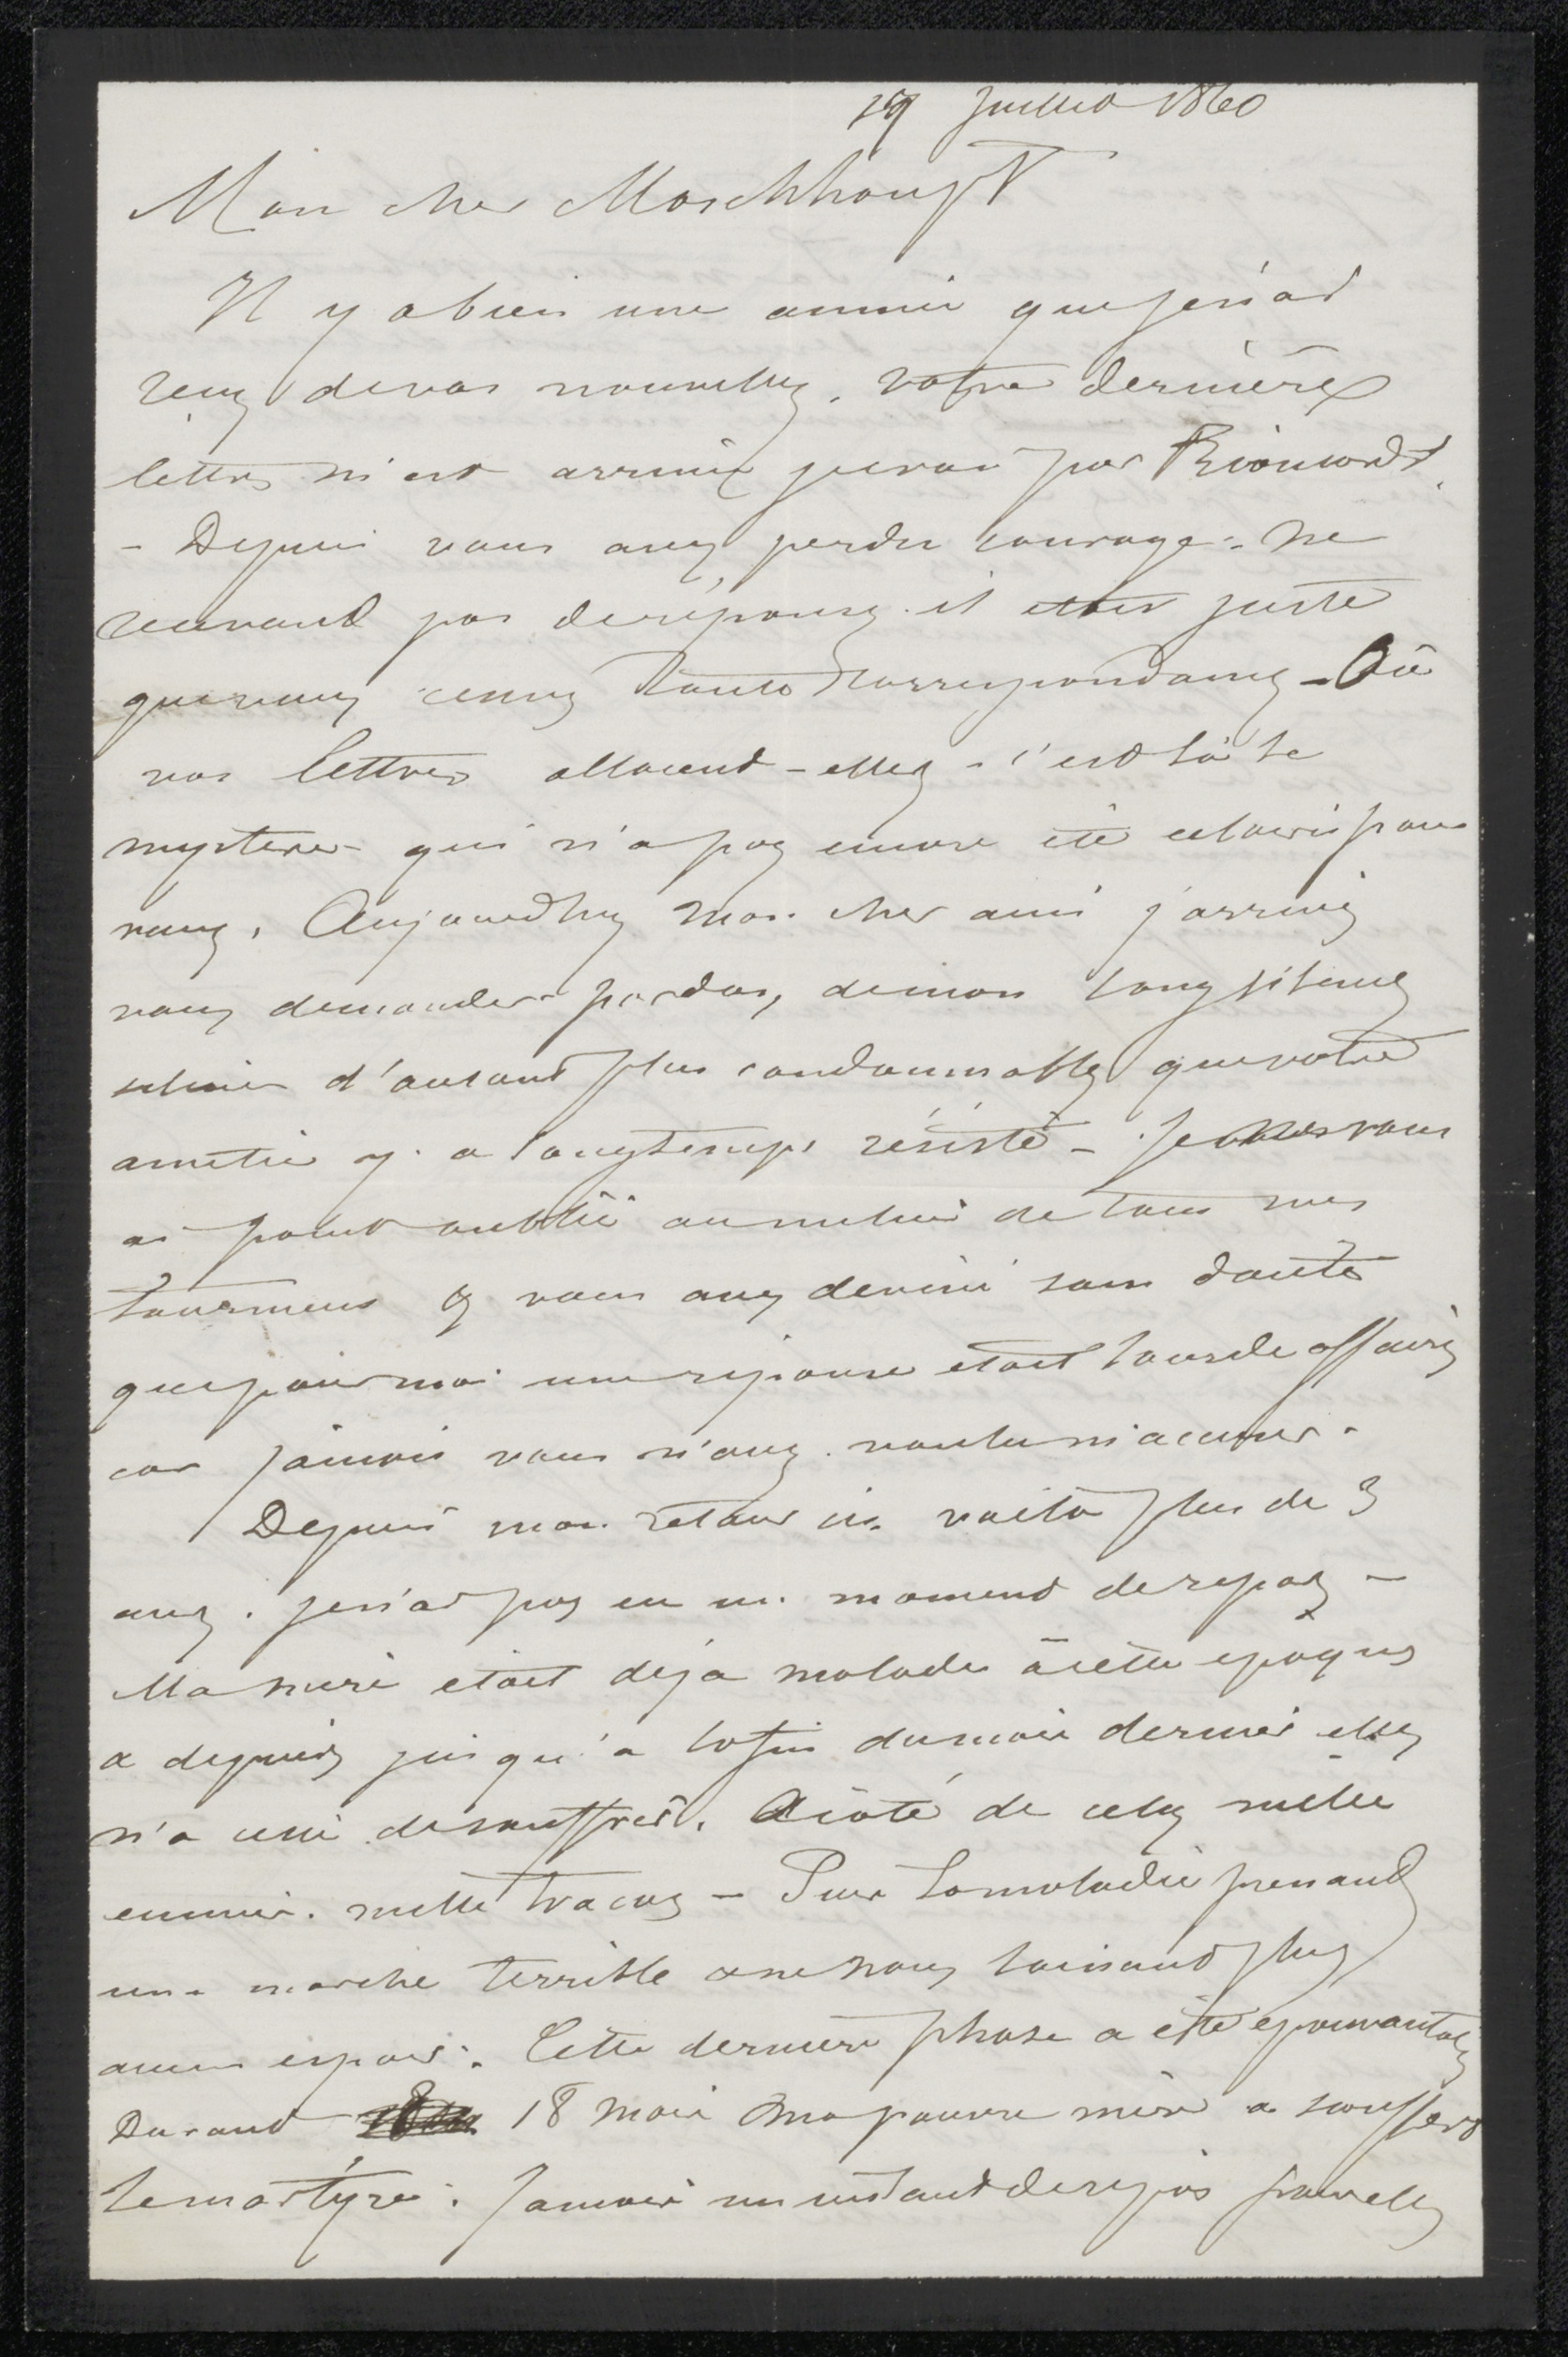 19 juillet 1860
Mon cher Maschhoupt
Il y a bien une année que je n'ai
reçu de vos nouvelles. votre dernière
lettre m'est arrivée je crois par
- Depuis vous avez perdu courage. ne
recevant pas de réponse. il était juste
que vous cessiez toute correspondance - Où
vos lettres allaient-elles - c'est là le
mystère qui n'a pas encore été éclairci pour
nous. Aujourd'huy mon cher ami j'arrive
vous demander pardon, de mon long silence
silence d'autant plus condamnable que votre
amitié y a longtemps résisté - Je ne vous
ai point oublié au milieu de tous mes
tourmens & vous avez deviné sans doute
que pour moi une réponse etait lourde affaire
car jamais vous n'avez voulu m'accuser.
Depuis mon retour ici voilà plus de 3
ans. je n'ai pas eu un moment de repos -
Ma mère etait déjà malade à cette epoque
& depuis jusqu'a la fin du mois dernier elle
n'a cessé de souffrir. A côté de cela mille
ennuis. mille tracas - Puis la maladie prenant
une marche terrible & ne nous laissant plus
aucun espoir. Cette dernière phase a été epouvantable
Durant 18 mois ma pauvre mère a souffert
le martyre. Jamais un instant de repos pour elle